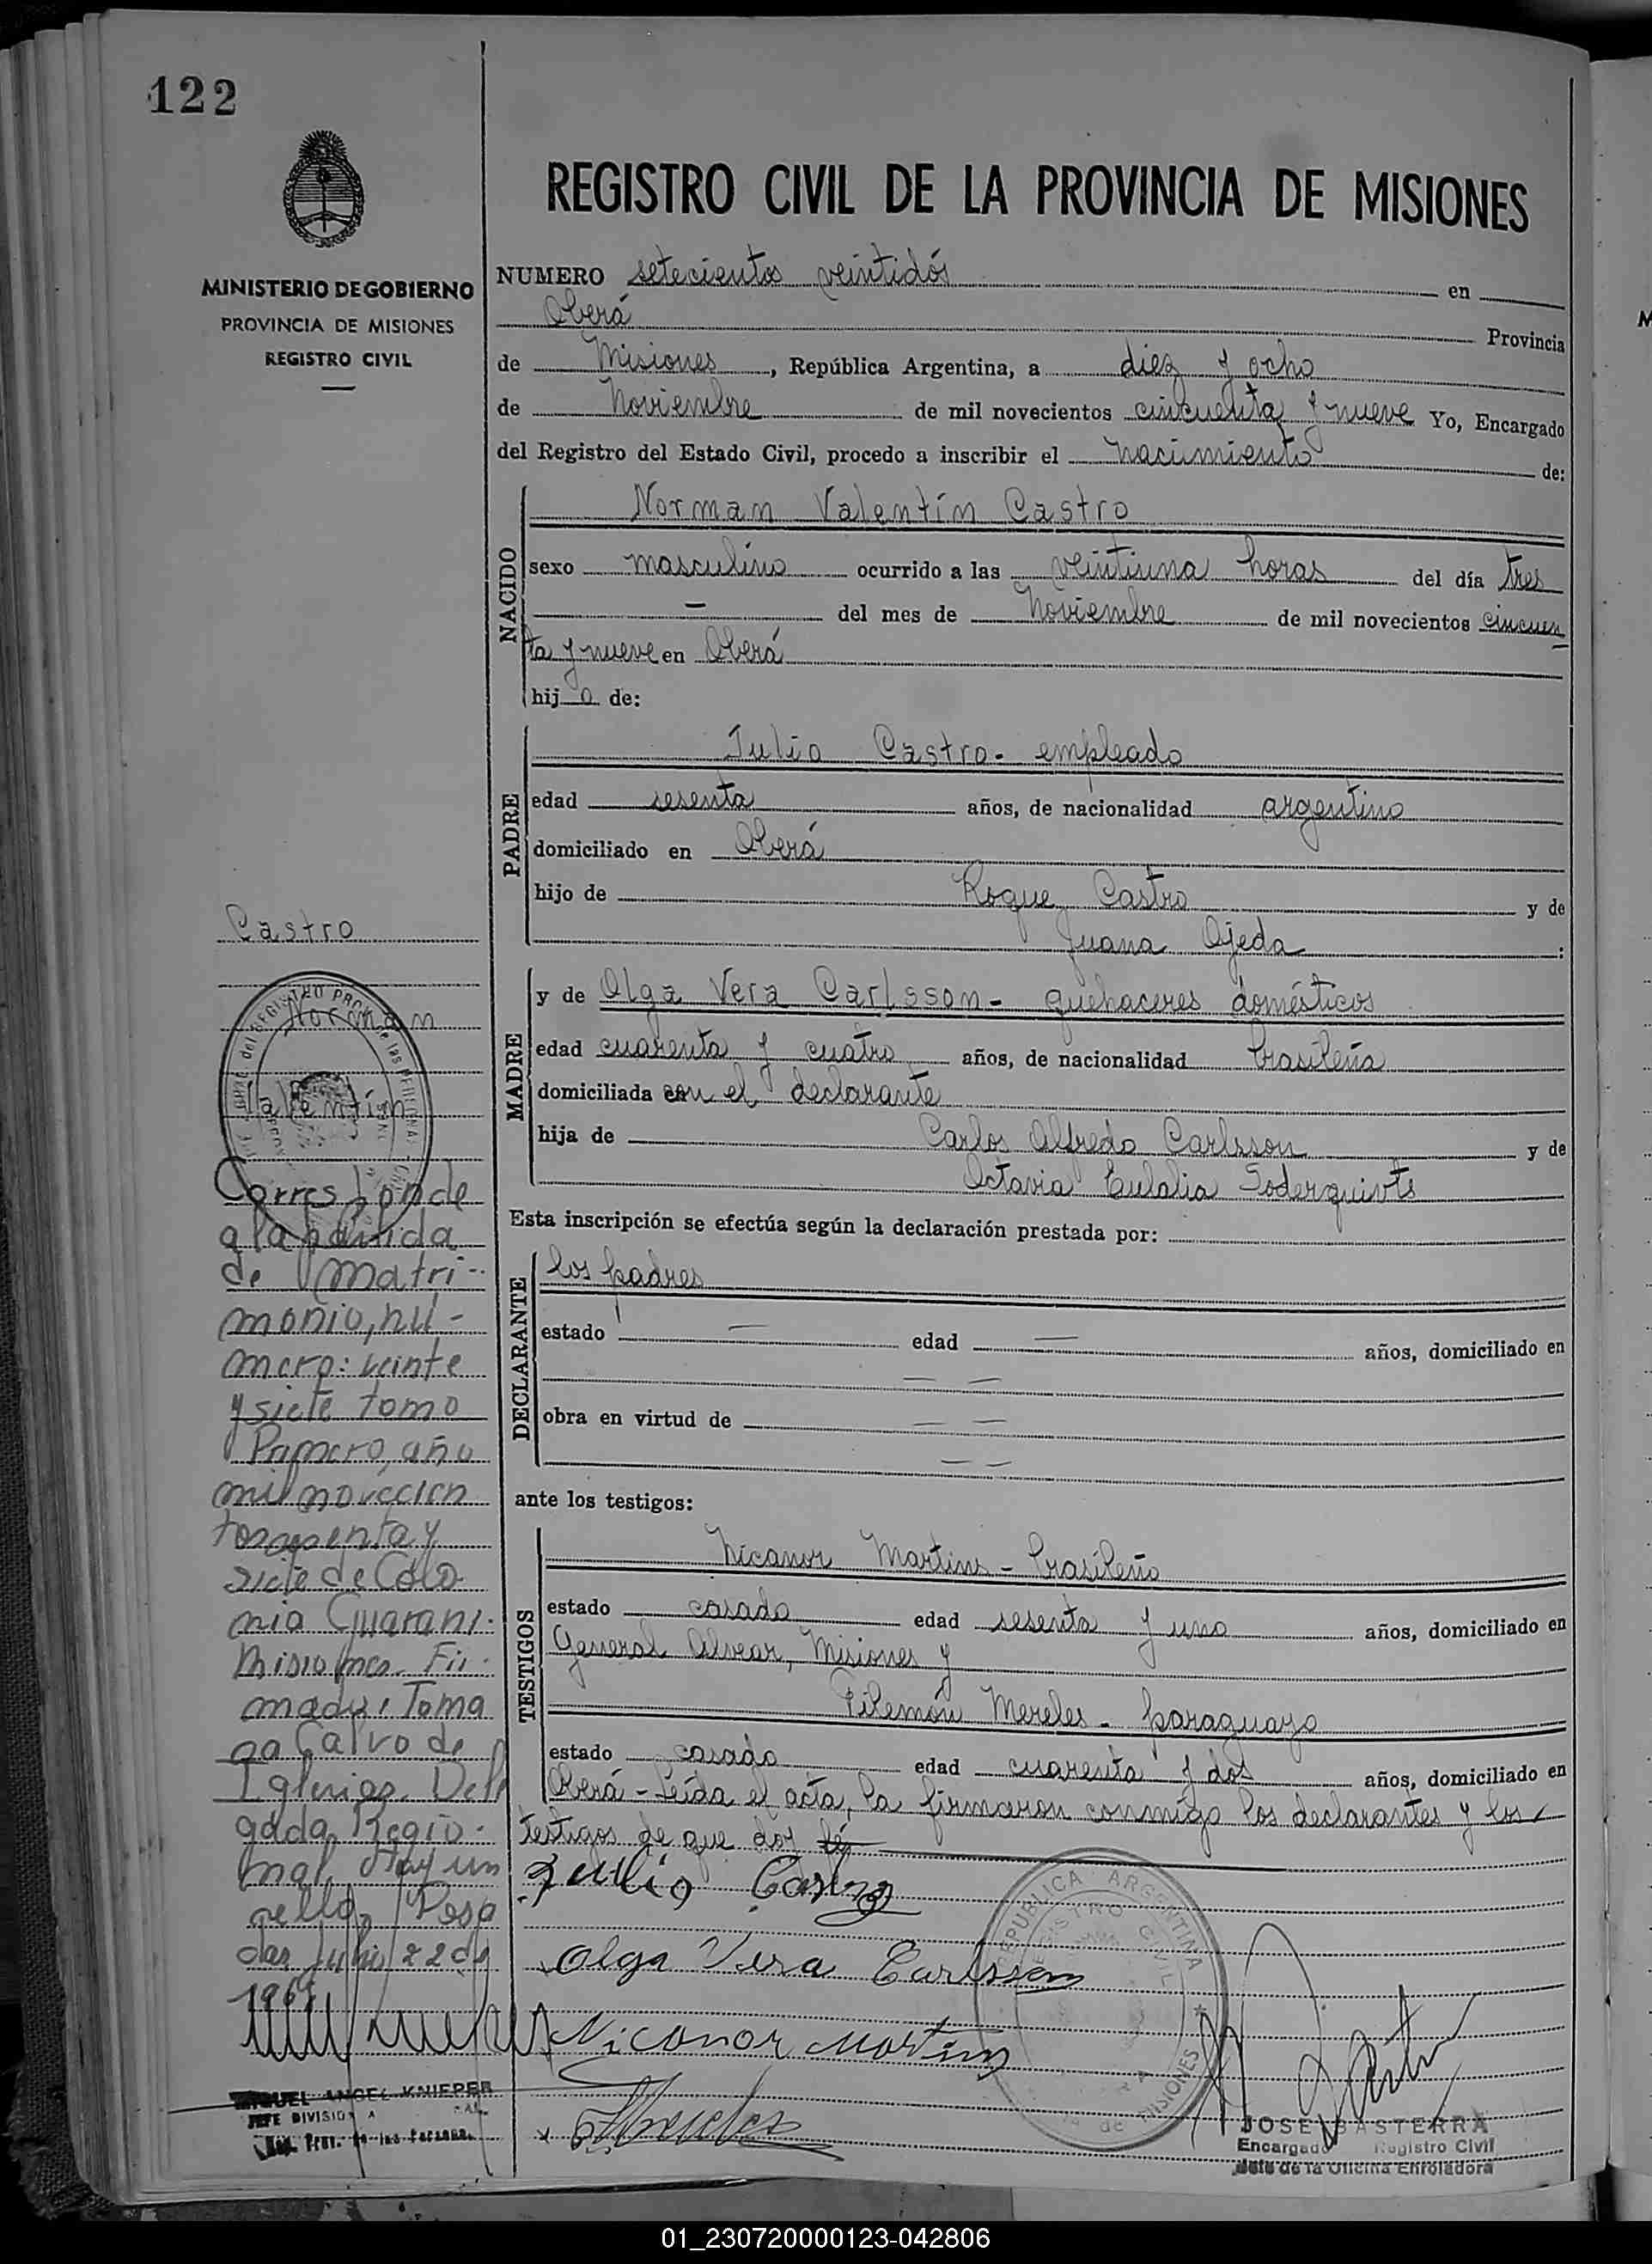 122
MINISTERIO DE GOBIERNO
PROVINCIA DE MISIONES
REGISTRO CIVIL
REGISTRO CIVIL DE LA PROVINCIA DE MISIONES
NUMERO setecientos veintidós en
Oberá Provincia
de Misiones, República Argentina, a diez y ocho
de Noviembre de mil novecientos cincuenta y nueve Yo, Encargado
del Registro del Estado Civil, procedo a inscribir el nacimiento de:
NACIDO
Norman Valentín Castro
sexo masculino ocurrido a las veintiuna horas del día tres
— del mes de Noviembre de mil novecientos cincuen
ta y nueve en Oberá
hijo de:
PADRE
Julio Castro - empleado
edad sesenta años, de nacionalidad argentino
domiciliado en Oberá
hijo de Roque Castro y de
Juana Ojeda :
MADRE
y de Olga Vera Carlsson - quehaceres domésticos
edad cuarenta y cuatro años, de nacionalidad brasileña
domiciliada con el declarante
hija de Carlos Alfredo Carlsson y de
Octavia Eulalia Soderquivts
Esta inscripción se efectúa según la declaración prestada por:
DECLARANTE
los padres
estado — edad — años, domiciliado en
— —
obra en virtud de — —
— —
ante los testigos:
TESTIGOS
Nicanor Martins - brasileño
estado casado edad sesenta y uno años, domiciliado en
General Alvear, Misiones y
Filemón Mereles - paraguayo
estado casado edad cuarenta y dos años, domiciliado en
Oberá - Leída el acta, la firmaron conmigo los declarantes y los
testigos de que doy fé
Julio Castro
Olga Vera Carlsson
Nicanor Martins
FMereles
REPUBLICA ARGENTINA
REGISTRO CIVIL
MISIONES
JOSE BASTERRA
Encargado Registro Civil
Jefe de la Oficina Enroladora
Castro
Norman
Valentín
Corresponde
a la partida
de matri-
monio, nú-
mero: veinte
y siete tomo
Primero, año
mil novecien
tos
siete de Colo-
nia Guaraní.
Misiones. Fir-
mado: Toma
sa Calvo de
Iglesias. Dele
gada Regio-
nal. Hay un
sello. Posa
das Julio 22 de
MIGUEL ANGEL KNIEPER
JEFE DIVISION
01_230720000123-042806